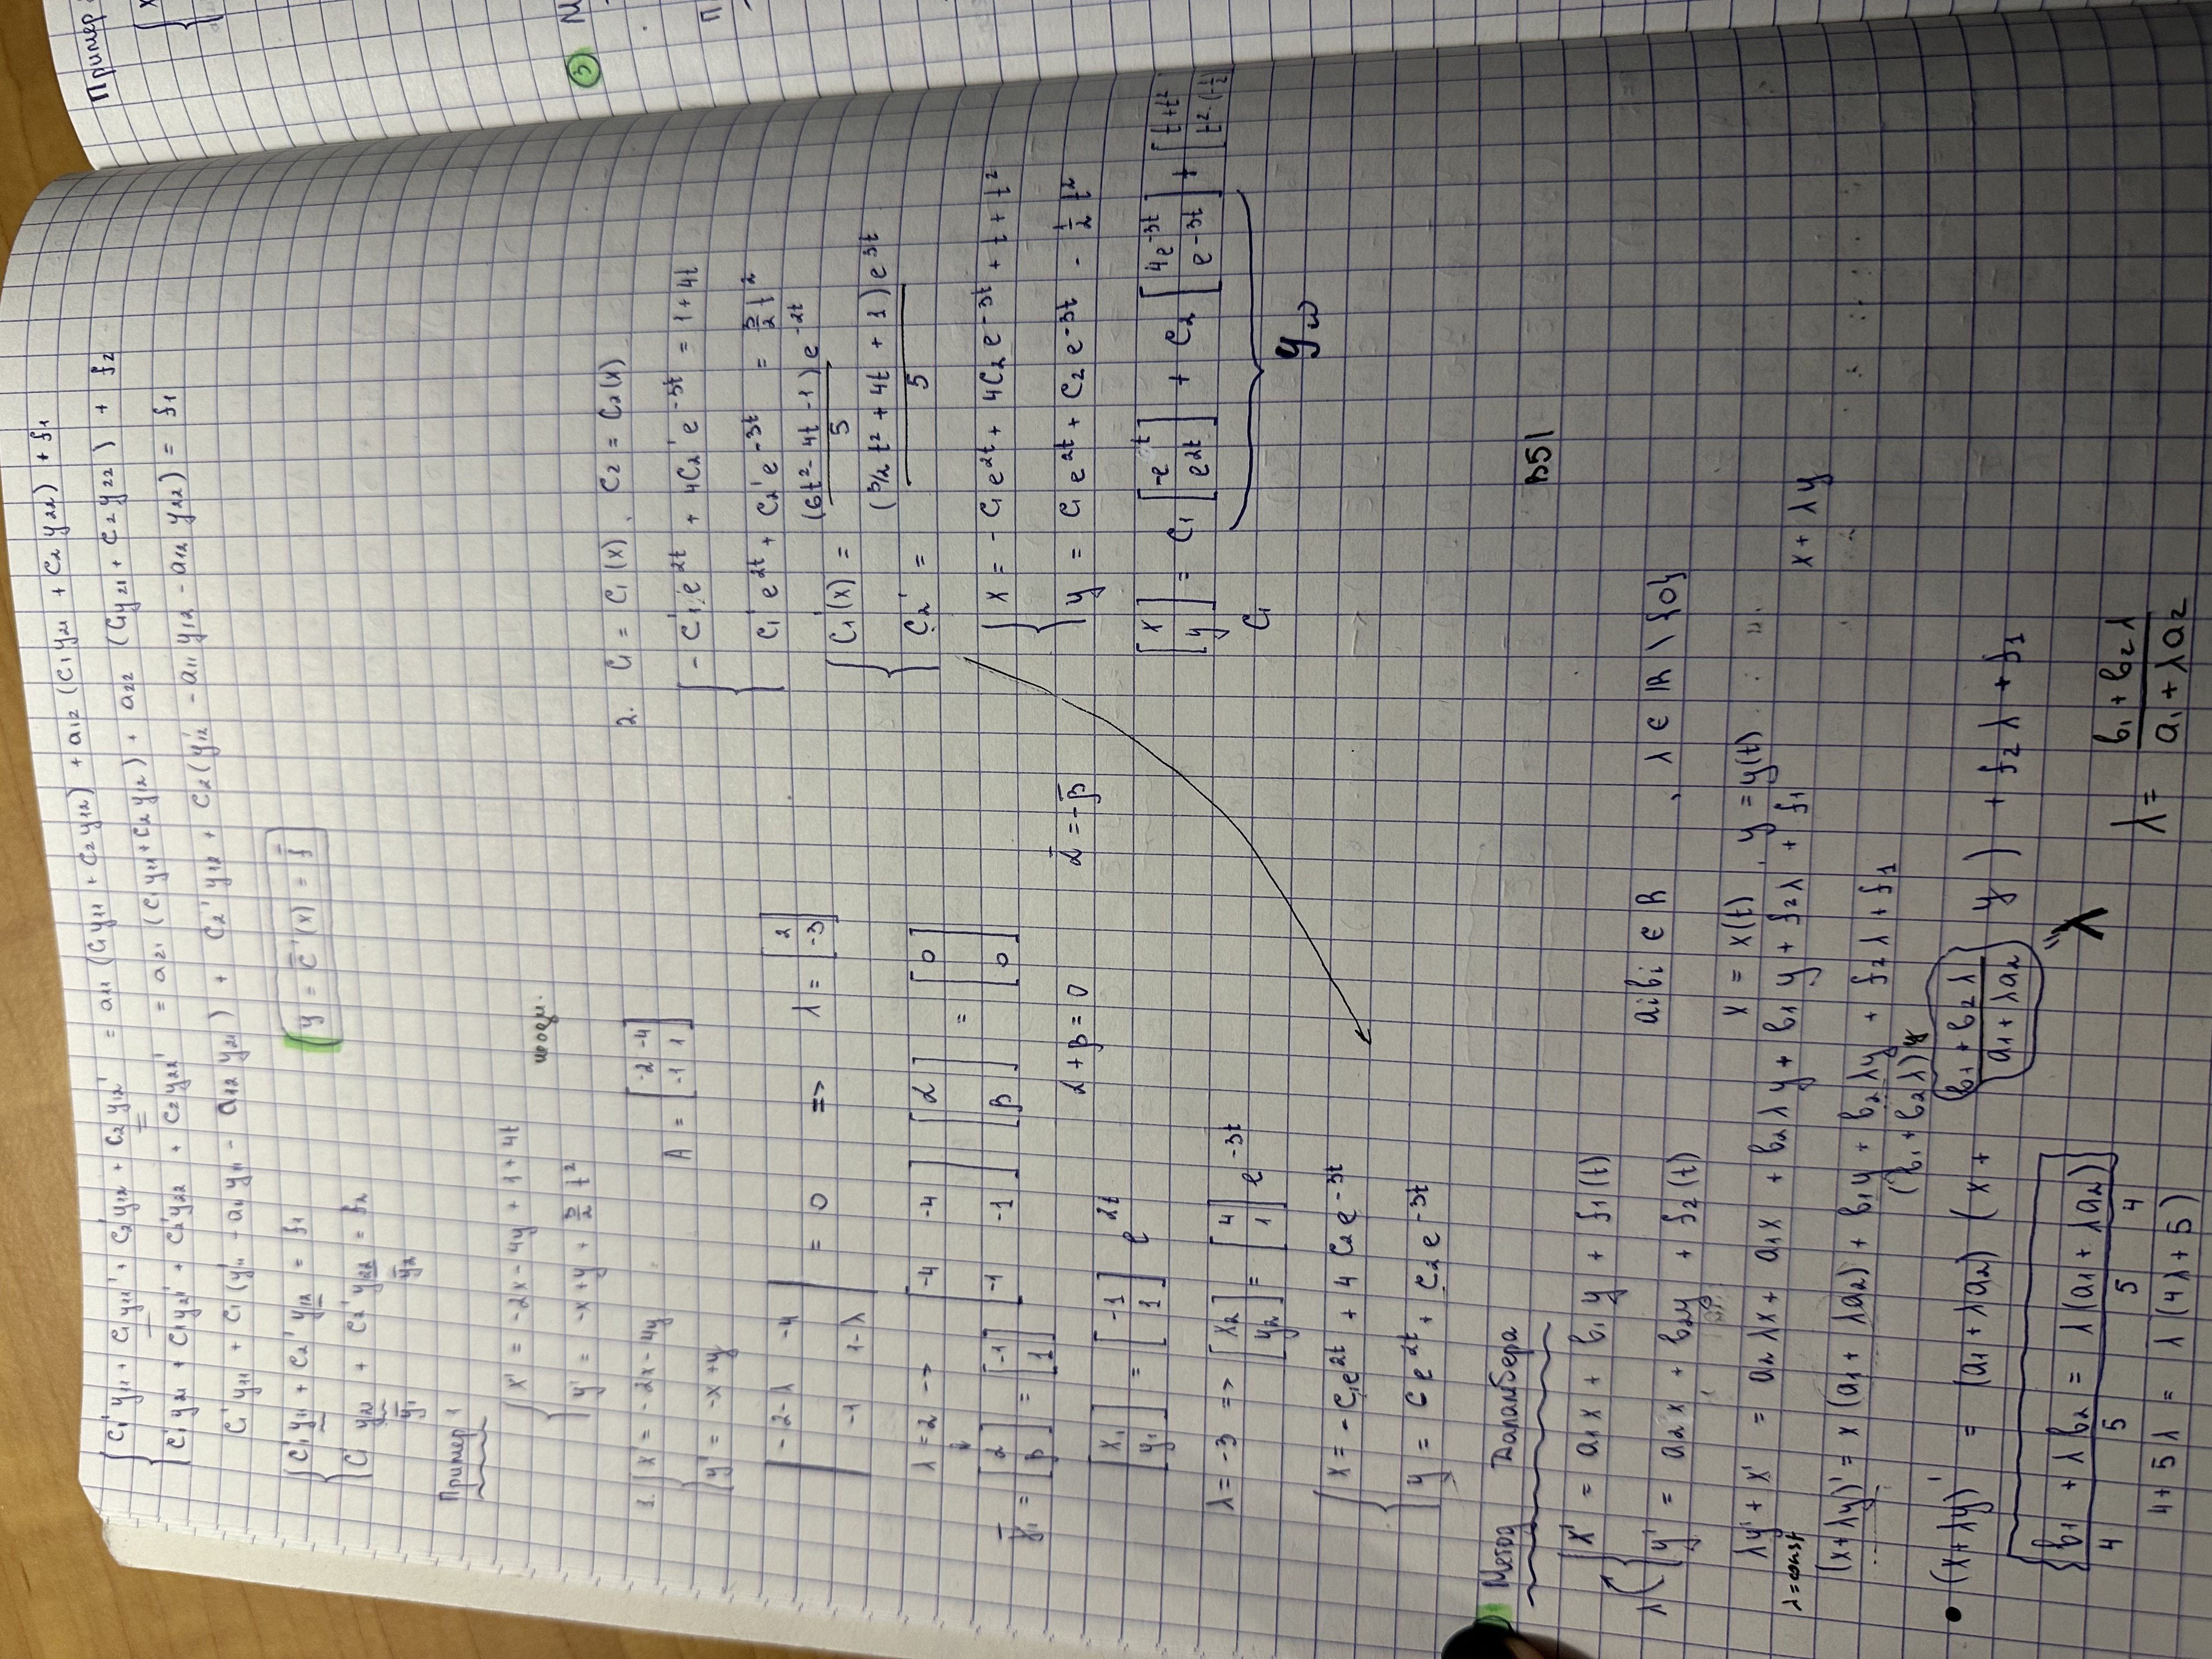 C₁'y₁₁ + C₁y₁₁' + C₂'y₁₂ + C₂y₁₂' = a₁₁(C₁y₁₁ + C₂y₁₂) + a₁₂(C₁y₂₁ + C₂y₂₂) + f₁
C₁'y₂₁ + C₁y₂₁' + C₂'y₂₂ + C₂y₂₂' = a₂₁(C₁y₁₁ + C₂y₁₂) + a₂₂(C₁y₂₁ + C₂y₂₂) + f₂
C₁'y₁₁ + C₁(y₁₁' - a₁₁y₁₁ - a₁₂y₂₁) + C₂'y₁₂ + C₂(y₁₂' - a₁₁y₁₂ - a₁₂y₂₂) = f₁
C₁'y₁₁ + C₂'y₁₂ = f₁
y = c̄'(x) = f̄
C₁ y₂₁ + C₂'y₂₂ = f₂
ȳ₁ ȳ₂
Пример 1
x' = -2x - 4y + 1 + 4t
y' = -x + y + 3/2 t²
1. x' = -2x - 4y
y' = -x + y
A = [-2 -4
-1 1]
|-2-λ -4
-1 1-λ| = 0 => λ = [2
-3]
λ = 2 -> [-4 -4
-1 -1] [α
β] = [0
0]
ȳ₁ = [α
β] = [-1
1]
α + β = 0 ᾱ = -β̄
[x₁
y₁] = [-1
1] e^2t
λ = -3 => [x₂
y₂] = [4
1] e^-3t
x = -C₁e^2t + 4 C₂e^-3t
y = Ce^2t + C₂e^-3t
2. C₁ = C₁(x), C₂ = C₂(x)
-C₁'e^2t + 4C₂'e^-3t = 1 + 4t
C₁'e^2t + C₂'e^-3t = 3/2 t²
C₁'(x) = (6t² - 4t - 1)e^-2t / 5
C₂' = (3/2 t² + 4t + 1)e^3t / 5
x = -C₁e^2t + 4C₂e^-3t + t + t²
y = C₁e^2t + C₂e^-3t - 1/2 t²
[x
y] = C₁ [-e^t
e^2t] + C₂ [4e^-3t
e^-3t] + [t + t²
t²·(-1/2)]
C₁
Метод Даламбера
B51
λ
x' = a₁x + b₁y + f₁(t)
y' = a₂x + b₂y + f₂(t)
aᵢbᵢ ∈ R, λ ∈ R \ {0}
x = x(t), y = y(t)
λy' + x' = a₂λx + a₁x + b₂λy + b₁y + f₂λ + f₁
λ = const
x + λy
(x+λy)' = x(a₁ + λa₂) + b₁y + b₂λy + f₂λ + f₁
(b₁ + b₂λ)y
• (x+λy)' = (a₁ + λa₂)(x + (b₁ + b₂λ)/(a₁ + λa₂) y) + f₂λ + f₁
"λ
b₁ + λb₂ = λ(a₁ + λa₂)
4 5 5 4
4 + 5λ = λ(4λ + 5)
λ = (b₁ + b₂λ)/(a₁ + λa₂)
Пример
3